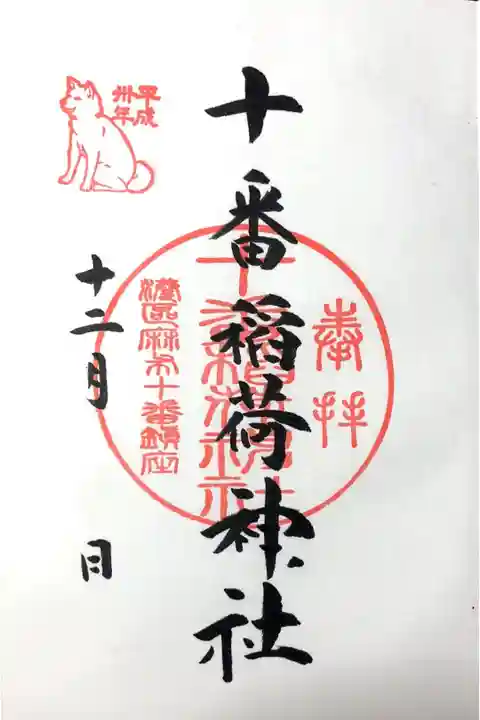 奉拝
十番稲荷神社
十番稲荷神社
港区麻布十番鎮座
平成
卅年
十二月 日